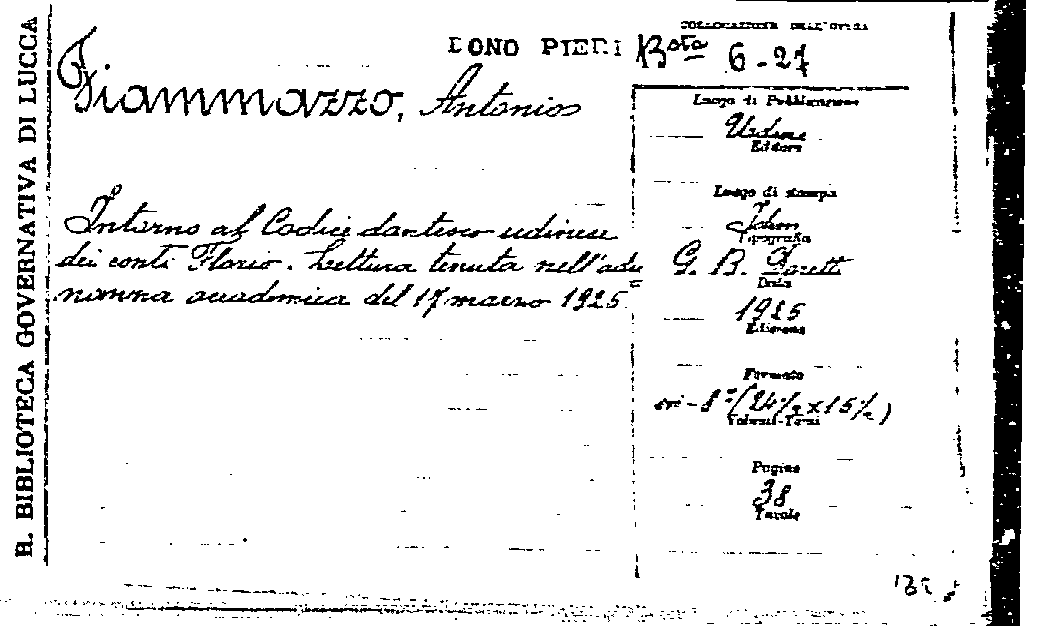 R. BIBLIOTECA GOVERNATIVA DI LUCCA
COLLOCAZIONE DELL'OPERA
DONO PIERI Bsta 6-27
Fiammazzo, Antonio
Intorno al Codice dantesco udinese
dei conti Florio. Lettura tenuta nell'adu=
nanza accademica del 17 marzo 1925
Luogo di Pubblicazione
Udine
Editore
Luogo di stampa
Idem
Tipografia
G. B. Doretti
Data
1925
Edizione
Formato
in-8° (24½ x 15½)
Volumi-Tomi
Pagine
38
Tavole